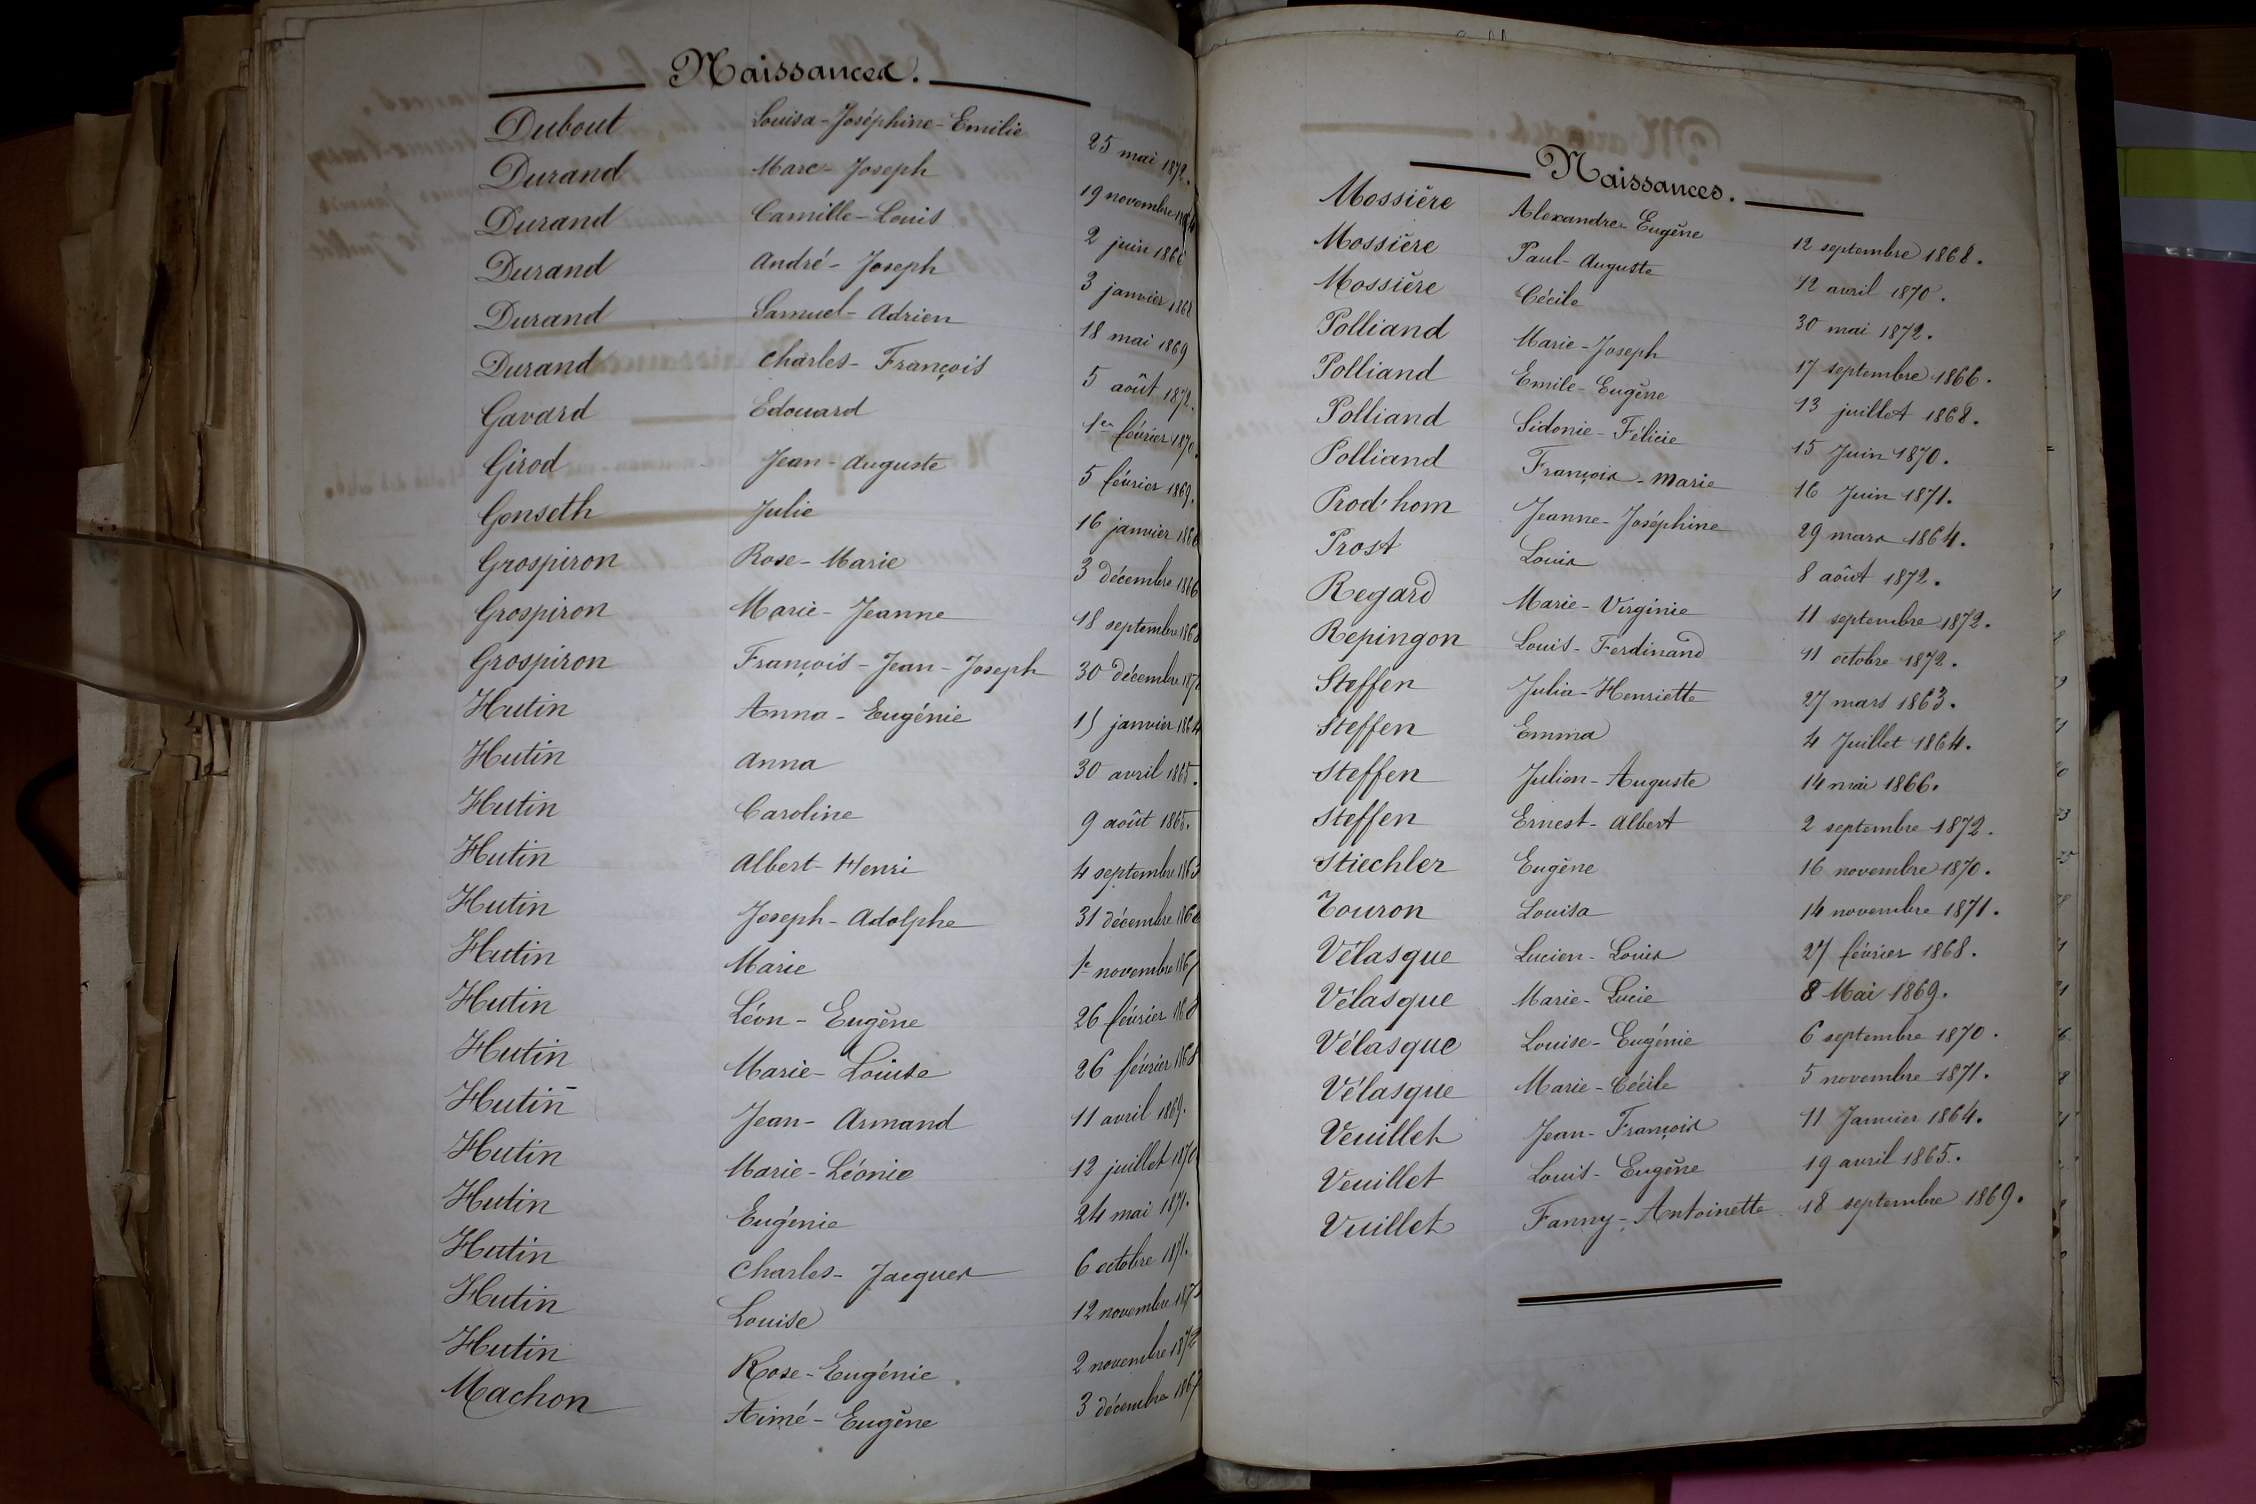 Naissances.
Dubout Louisa-Joséphine-Emilie 25 mai 1872.
Durand Marc-Joseph 19 novembre
Durand Camille-Louis 2 juin
Durand André-Joseph 3 janvier 1868
Durand Samuel-Adrien 18 mai 1869
Durand Charles-François 5 août 1872.
Gavard Edouard 1er février 1870.
Girod Jean-Auguste 5 février 1869.
Gonseth Julie 16 janvier
Grospiron Rose-Marie 3 décembre 1866
Grospiron Marie-Jeanne 18 septembre 1868
Grospiron François-Jean-Joseph 30 décembre
Hutin Anna-Eugénie 15 janvier 1864
Hutin Anna 30 avril 1865.
Hutin Caroline 9 août 1865.
Hutin Albert-Henri 4 septembre
Hutin Joseph-Adolphe 31 décembre 1866
Hutin Marie 1e novembre 1867
Hutin Léon-Eugène 26 février 1868
Hutin Marie-Louise 26 février 1868
Hutin Jean-Armand 11 avril 1869.
Hutin Marie-Léonie 12 juillet 1870
Hutin Eugénie 24 mai 1871.
Hutin Charles-Jacques 6 octobre 1871.
Hutin Louise 12 novembre
Hutin Rose-Eugénie. 2 novembre 1872
Machon Aimé-Eugène 3 décembre 1867
Naissances.
Mossière Alexandre-Eugène 12 septembre 1868.
Mossière Paul-Auguste 12 avril 1870.
Mossière Cécile 30 mai 1872.
Polliand Marie-Joseph 17 septembre 1866.
Polliand Emile-Eugène 13 juillet 1868.
Polliand Sidonie-Félicie 15 Juin 1870.
Polliand François-Marie 16 Juin 1871.
Prod'hom Jeanne-Joséphine 29 mars 1864.
Prost Louis 8 août 1872.
Regard Marie-Virginie 11 septembre 1872.
Repingon Louis-Ferdinand 11 octobre 1872.
Steffen Julia-Henriette 27 mars 1863.
Steffen Emma 4 Juillet 1864.
Steffen Julien-Auguste 14 mai 1866.
Steffen Ernest-Albert 2 septembre 1872.
Stiechler Eugène 16 novembre 1870.
Touron Louisa 14 novembre 1871.
Vélasque Lucien-Louis 27 février 1868.
Vélasque Marie-Lucie 8 Mai 1869.
Vélasque Louise-Eugénie 6 septembre 1870.
Vélasque Marie-Cécile 5 novembre 1871.
Veuillet Jean-François 11 Janvier 1864.
Veuillet Louis-Eugène 19 avril 1865.
Vuillet Fanny-Antoinette 18 septembre 1869.